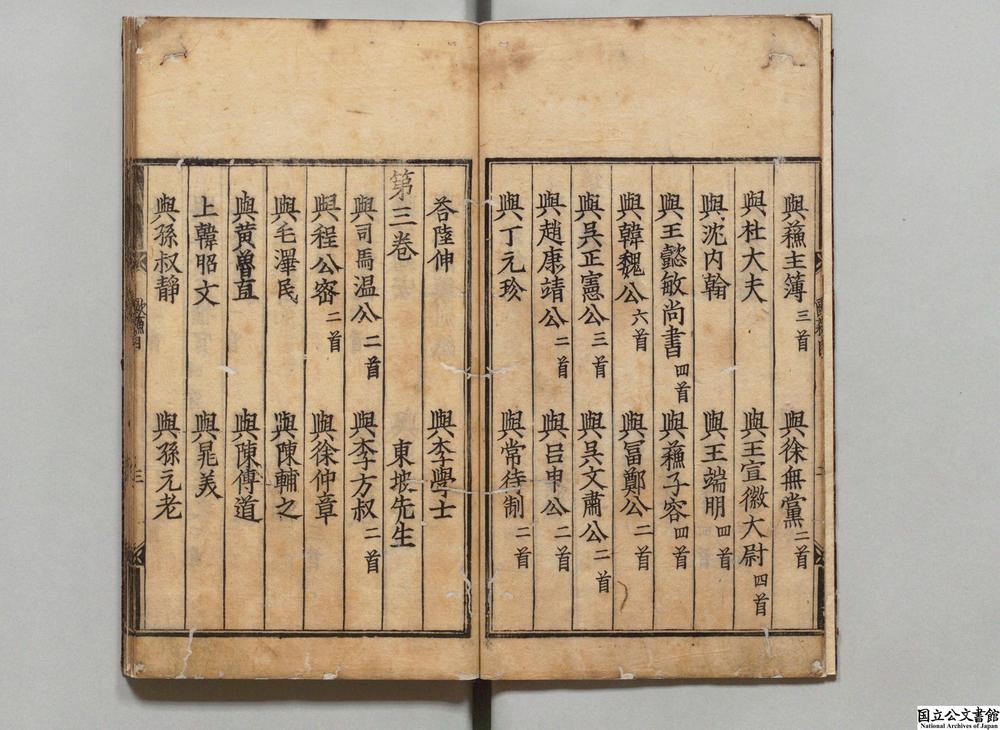 與蘓主簿三首 與徐無黨二首
與杜大夫 與王宣徽大尉四首
與沈内翰 與王端明四首
與王懿敏尚書四首 與蘓子容四首
與韓魏公六首 與冨鄭公二首
與吴正憲公三首 與吴文肅公二首
與趙康靖公二首 與吕申公二首
與丁元珍 與常待制二首
荅陸伸 與李學士
第三卷 東坡先生
與司馬温公二首 與李方叔二首
與程公密二首 與徐仲章
與毛澤民 與陳輔之
與黄魯直 與陳傳道
上韓昭文 與晁美
與孫叔靜 與孫元老
歐蘓目 三
国立公文書館
National Archives of Japan